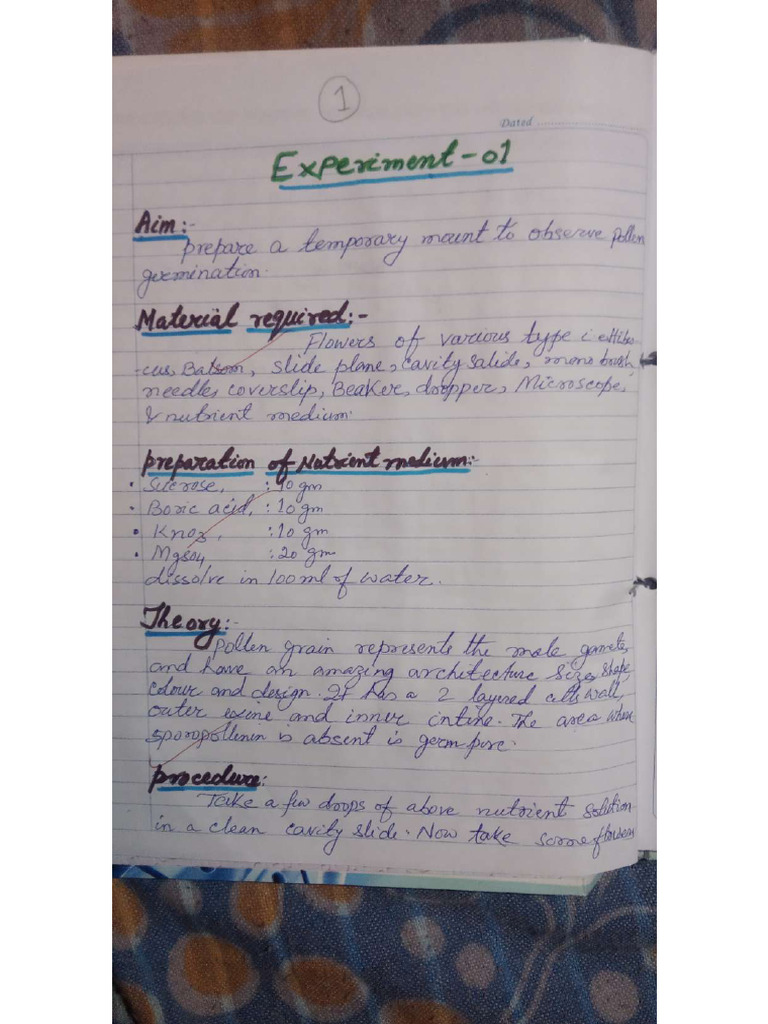 1
Dated ....................
Experiment-01
Aim:-
prepare a temporary mount to observe pollen
germination.
Material required:-
Flowers of various type i.e Hibis
-cus, Balsom, slide plane, cavity salide, mono brush,
needles, coverslip, Beaker, dropper, Microscope,
& nutrient medium.
preparation of Nutrient medium:-
• Sucrose, : 10 gm
• Boric acid, : 10 gm
• Kno3, : 10 gm
• Mgso4 : 20 gm
dissolve in 100ml of water.
Theory:-
pollen grain represents the male gametes
and have an amazing architecture size, shape
colour and design. It has a 2 layered cells wall,
outer exine and inner intine. The area where
sporopollenin is absent is germ pore.
procedure:
Take a few drops of above nutrient solution
in a clean cavity slide. Now take some flowers